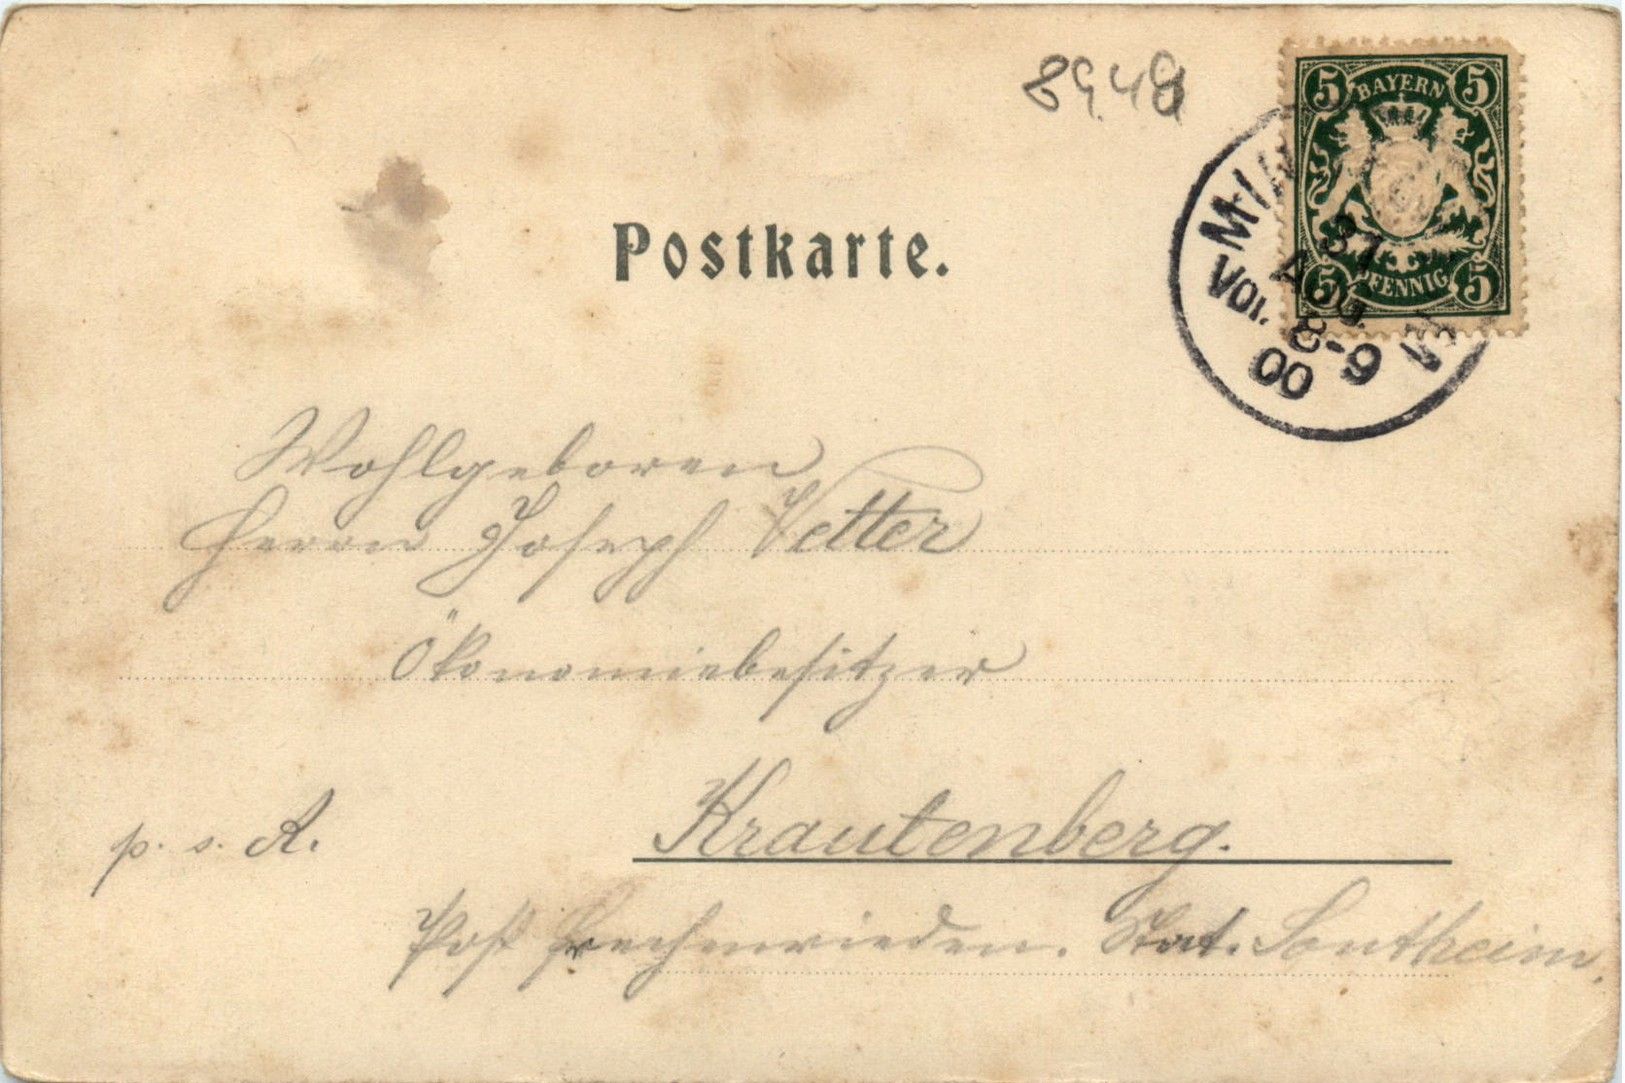 8948
5 BAYERN 5
5 PFENNIG 5
31
AUG.
Vor. 8-9
00
Postkarte.
Wohlgeboren
Herrn Joseph Vetter
Ökonomiebesitzer
p. s. A.
Krautenberg.
Post Frechenrieden. Stat. Sontheim.